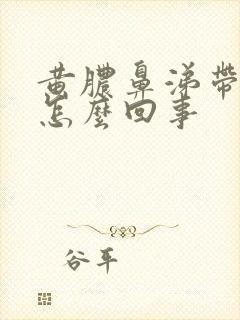 黄膿鼻涕帶
怎麼回事
谷平